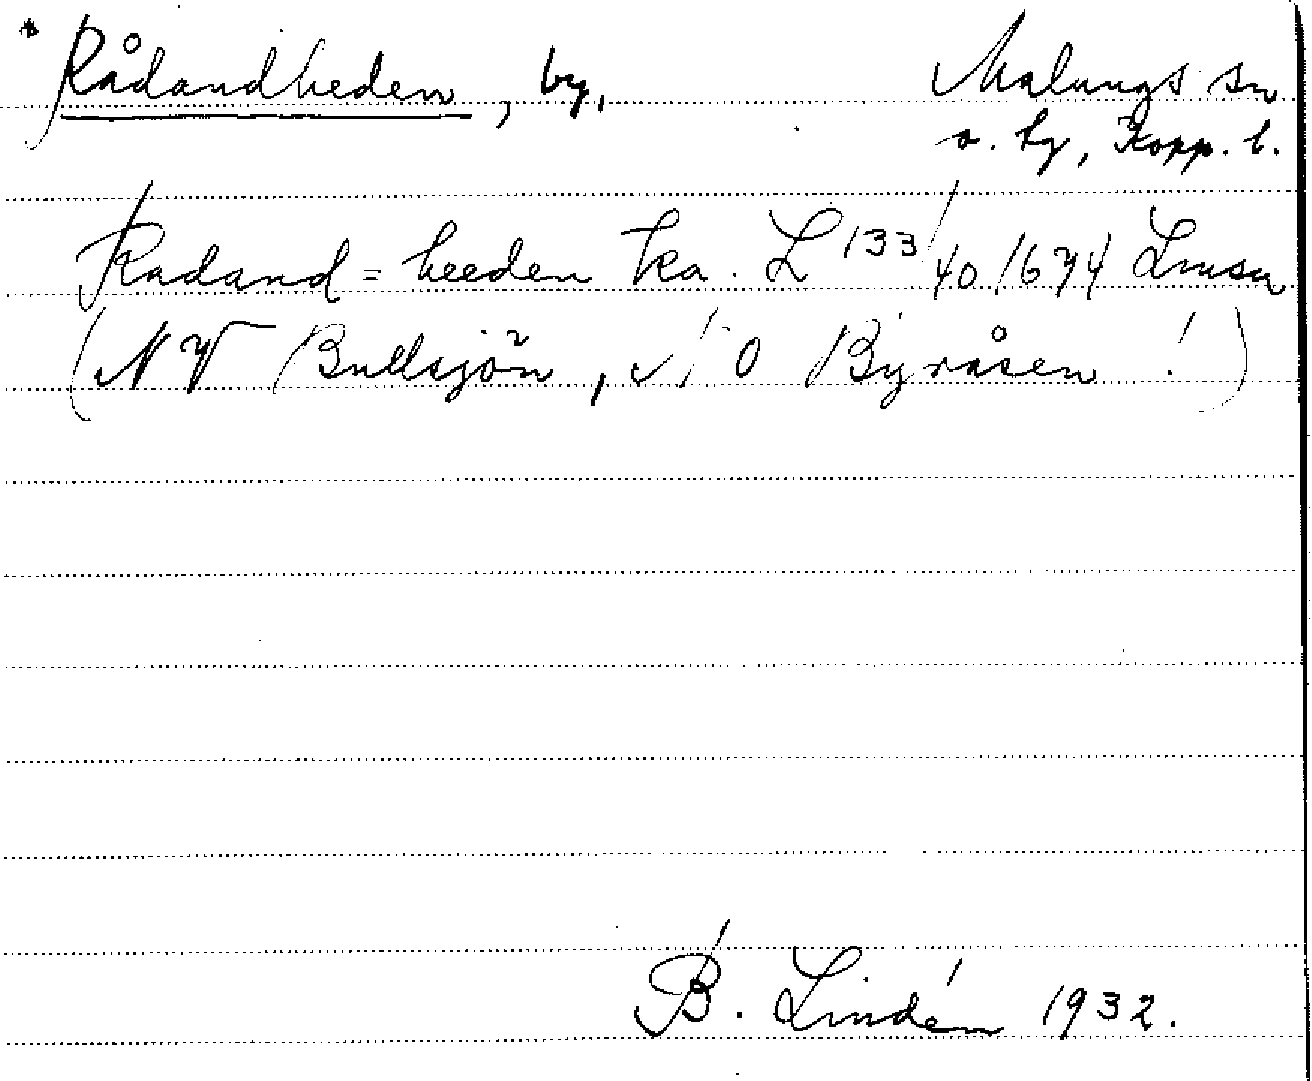 * Rådandheden, by, Malungs sn
s. hg, Kopp. l.
Radand=heeden ka. L 133/40 1674 Lmsa
(NV Bullsjön, O Byråsen!)
B. Lindén 1932.